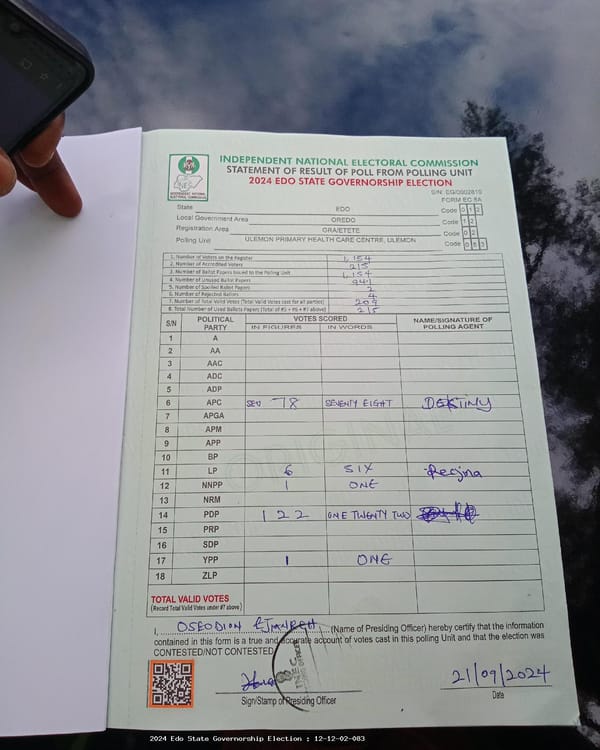 INDEPENDENT NATIONAL ELECTORAL COMMISSION
STATEMENT OF RESULT OF POLL FROM POLLING UNIT
2024 EDO STATE GOVERNORSHIP ELECTION
FORM EC 8A
State EDO Code 0 1 2
Local Government Area OREDO Code 1 2
Registration Area GRA/ETETE Code 0 2
Polling Unit ULEMON PRIMARY HEALTH CARE CENTRE, ULEMON Code 0 8 3
1. Number of Voters on the Register 1,154
2. Number of Accredited Voters 215
3. Number of Ballot Papers Issued to the Polling Unit 1,154
4. Number of Unused Ballot Papers
5. Number of Spoiled Ballot Papers 2
6. Number of Rejected Ballots 4
7. Number of Total Valid Votes (Total Valid Votes cast for all parties) 209
8. Total Number of Used Ballots Papers (Total of #5 + #6 + #7 above) 215
S/N POLITICAL PARTY VOTES SCORED NAME/SIGNATURE OF POLLING AGENT
IN FIGURES IN WORDS
1 A
2 AA
3 AAC
4 ADC
5 ADP
6 APC 78 SEVENTY EIGHT DESTINY
7 APGA
8 APM
9 APP
10 BP
11 LP 6 SIX Regina
12 NNPP 1 ONE
13 NRM
14 PDP 122 ONE TWENTY TWO
15 PRP
16 SDP
17 YPP 1 ONE
18 ZLP
TOTAL VALID VOTES
(Record Total Valid Votes under #7 above)
I, OSEODION (Name of Presiding Officer) hereby certify that the information
contained in this form is a true and accurate account of votes cast in this polling Unit and that the election was
CONTESTED/NOT CONTESTED
21/09/2024
Sign/Stamp of Presiding Officer Date
2024 Edo State Governorship Election : 12-12-02-083